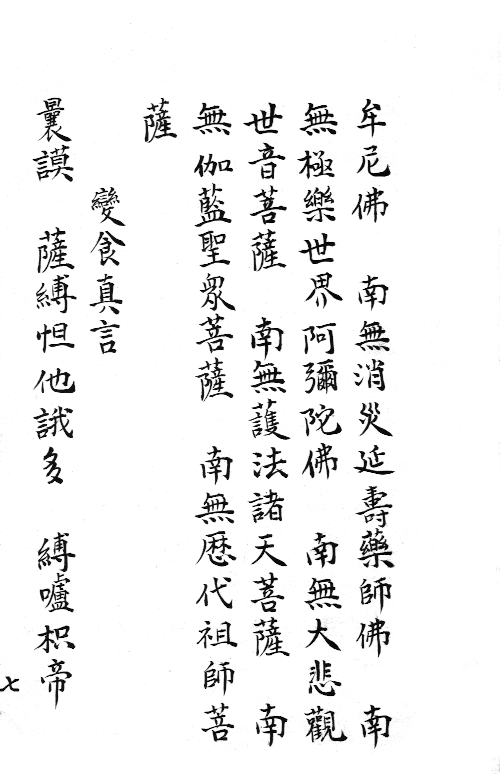 牟尼佛　南無消災延壽藥師佛　南
無極樂世界阿彌陀佛　南無大悲觀
世音菩薩　南無護法諸天菩薩　南
無伽藍聖眾菩薩　南無歷代祖師菩
薩
變食真言
曩謨　薩縛怛他誐多　縛嚧枳帝
七